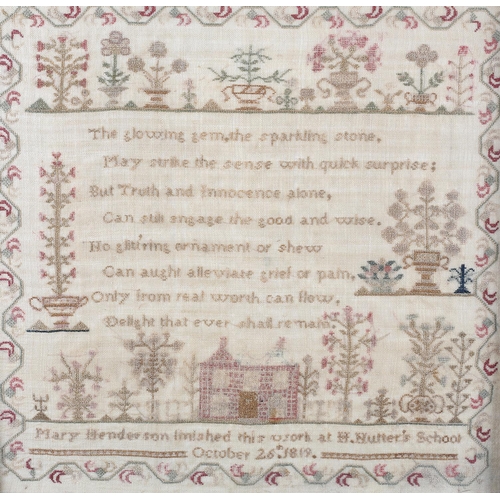 The glowing gem, the sparkling stone,
May strike the sense with quick surprise;
But Truth and Innocence alone,
Can still engage the good and wise.
No glitt'ring ornament or shew
Can aught alleviate grief or pain,
Only from real worth can flow,
Delight that ever shall remain.
Mary Henderson finished this work at H. Nutter's School
October 26th 1819.